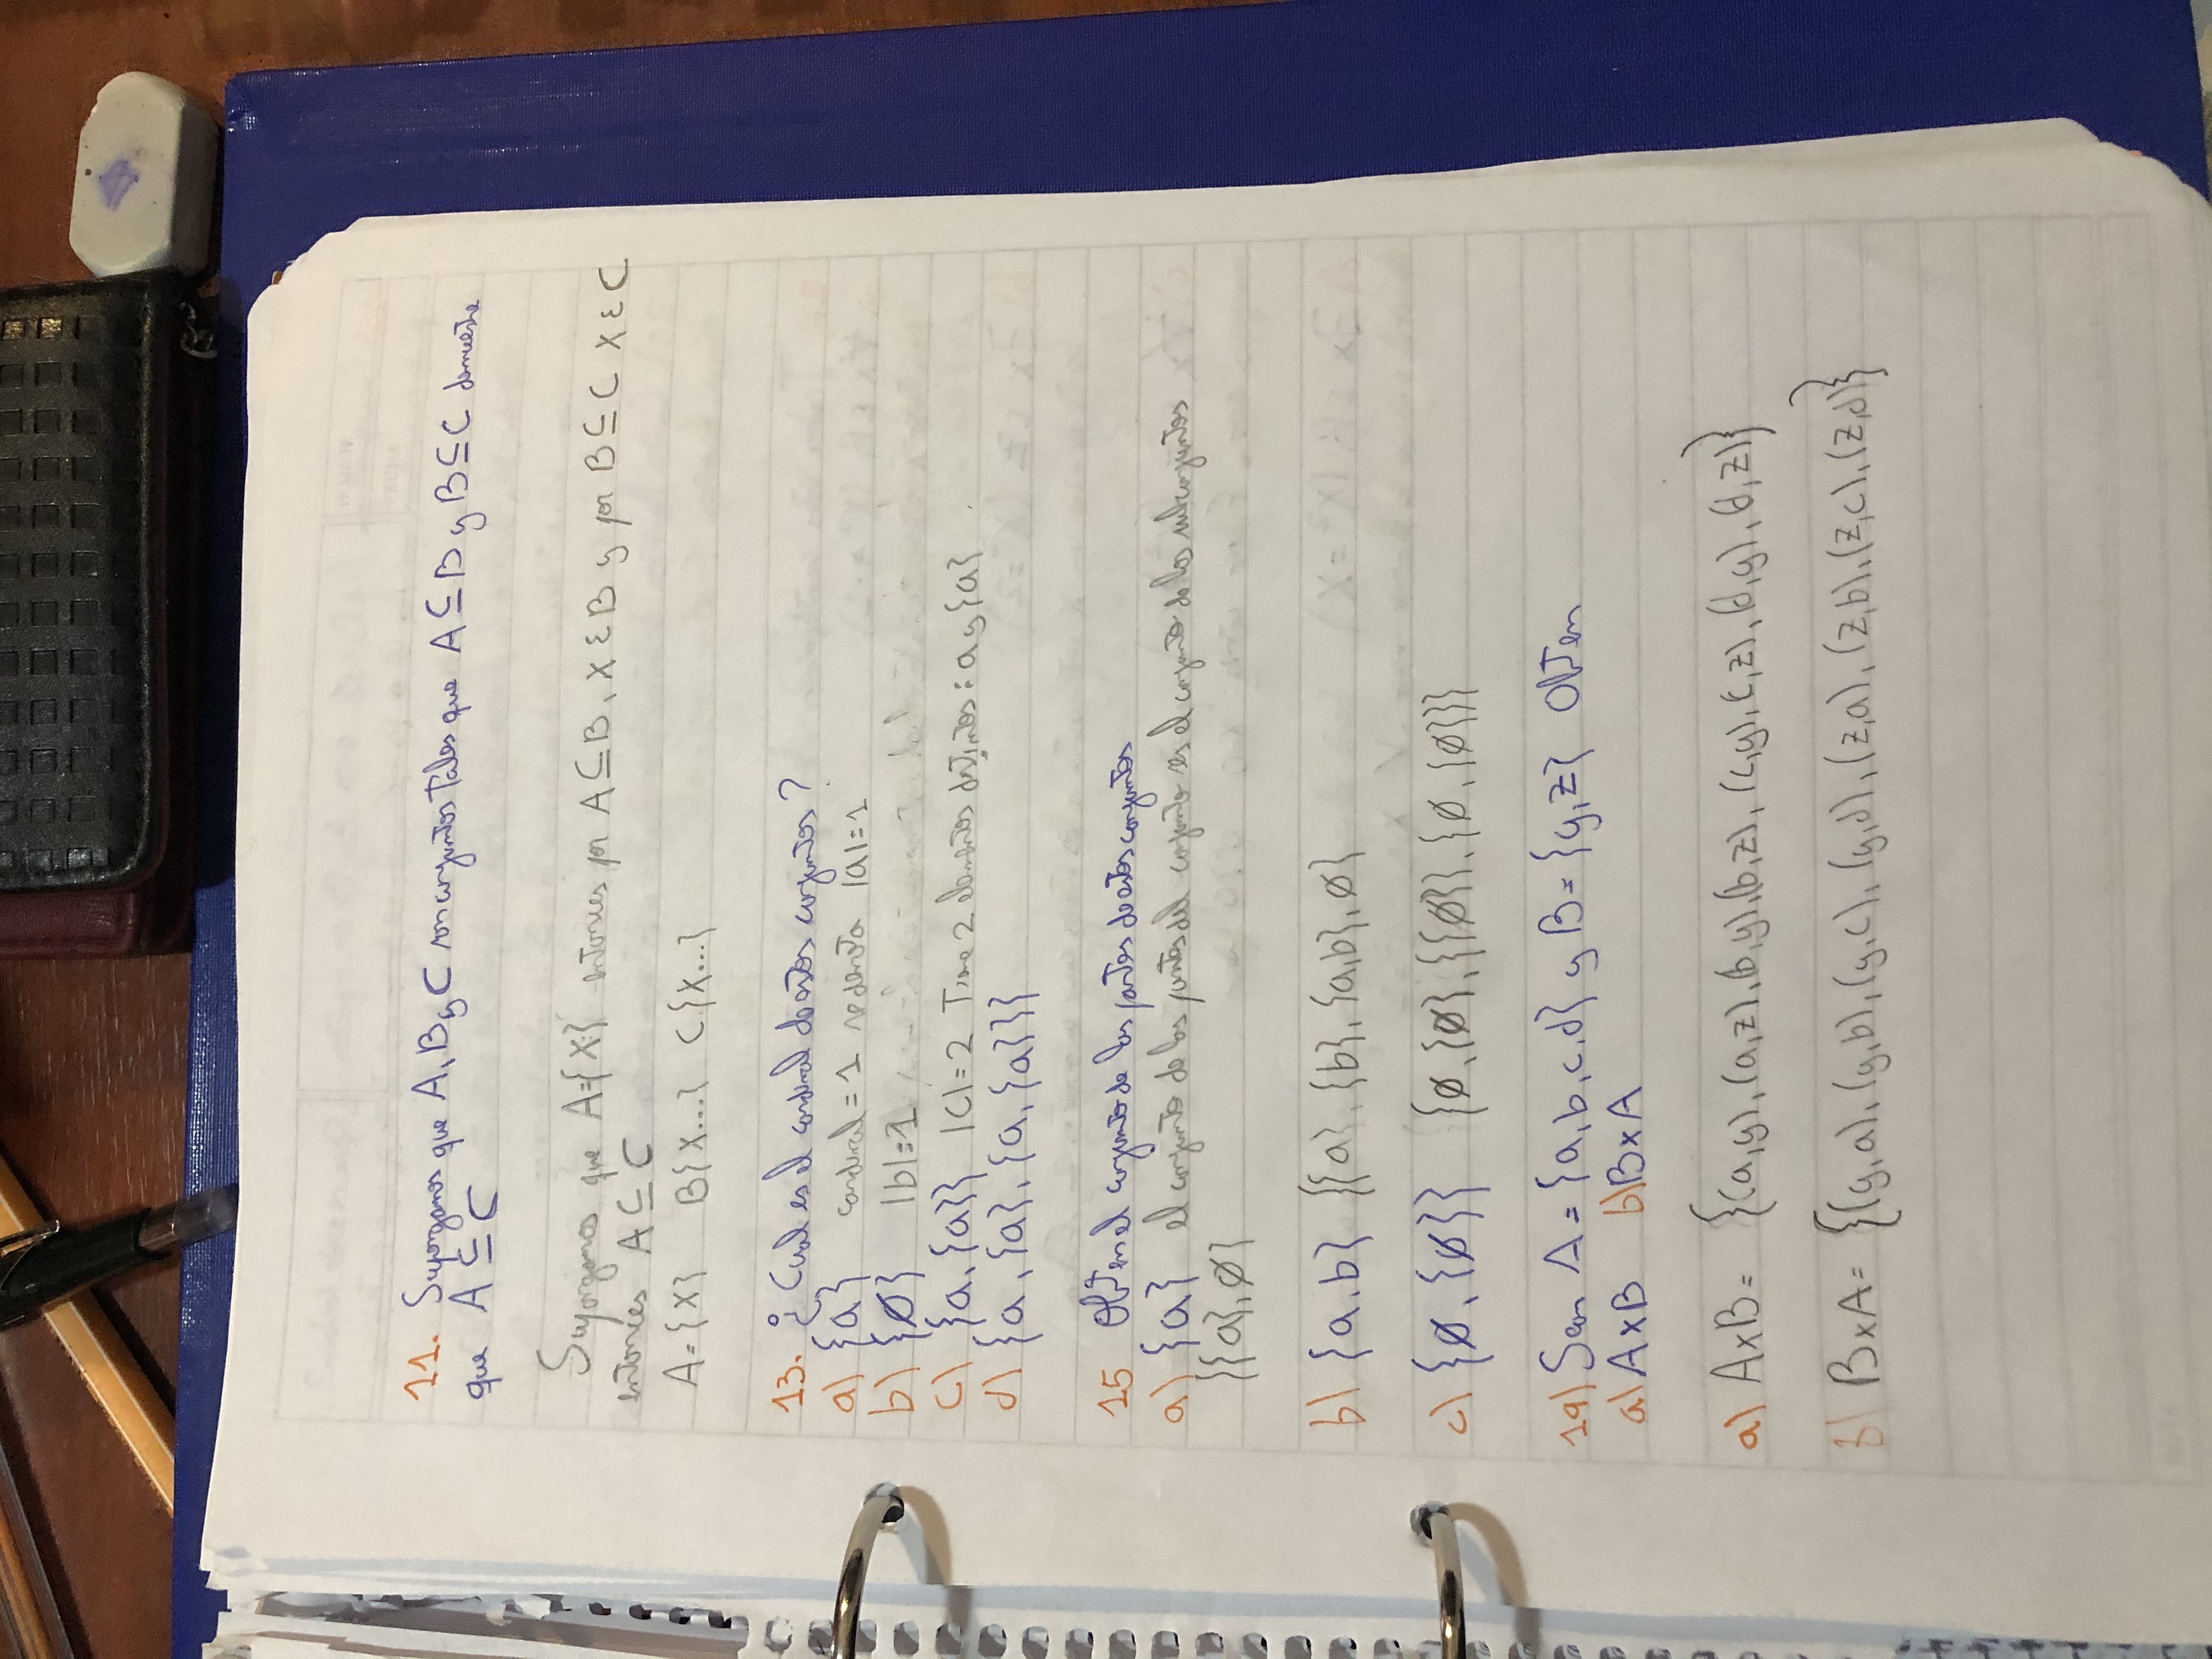 11. Supongamos que A, B y C son conjuntos tales que A ⊆ B y B ⊆ C demuestre
que A ⊆ C
Supongamos que A={x} entonces por A ⊆ B, x ε B y por B ⊆ C x ε C
entonces A ⊆ C
A={x} B{x...} C{x...}
13. ¿Cual es el cardinal de estos conjuntos?
a) {a} cardinal = 1 se denota |a|=1
b) {∅} |b|=1
c) {a, {a}} |c|=2 Tiene 2 elementos distintos: a y {a}
d) {a, {a}, {a, {a}}}
15 Obten el conjunto de las partes de estos conjuntos
a) {a} el conjunto de las partes del conjunto es el conjunto de los subconjuntos
{{a}, ∅}
b) {a, b} {{a}, {b}, {a,b}, ∅}
c) {∅, {∅}} {∅, {∅}, {{∅}}, {∅, {∅}}}
19) Sean A = {a, b, c, d} y B = {y, z} Obten
a) A x B b) B x A
a) A x B = {(a,y), (a,z), (b,y), (b,z), (c,y), (c,z), (d,y), (d,z)}
b) B x A = {(y,a), (y,b), (y,c), (y,d), (z,a), (z,b), (z,c), (z,d)}